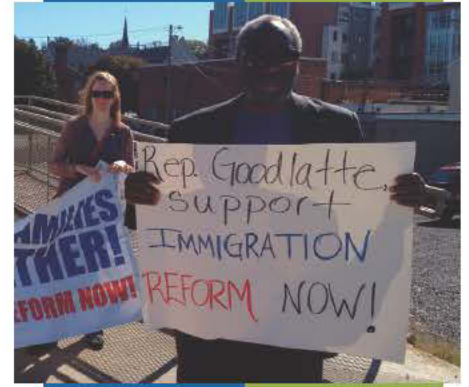 Rep. Goodlatte,
support
IMMIGRATION
REFORM NOW!
THER!
EFORM NOW!